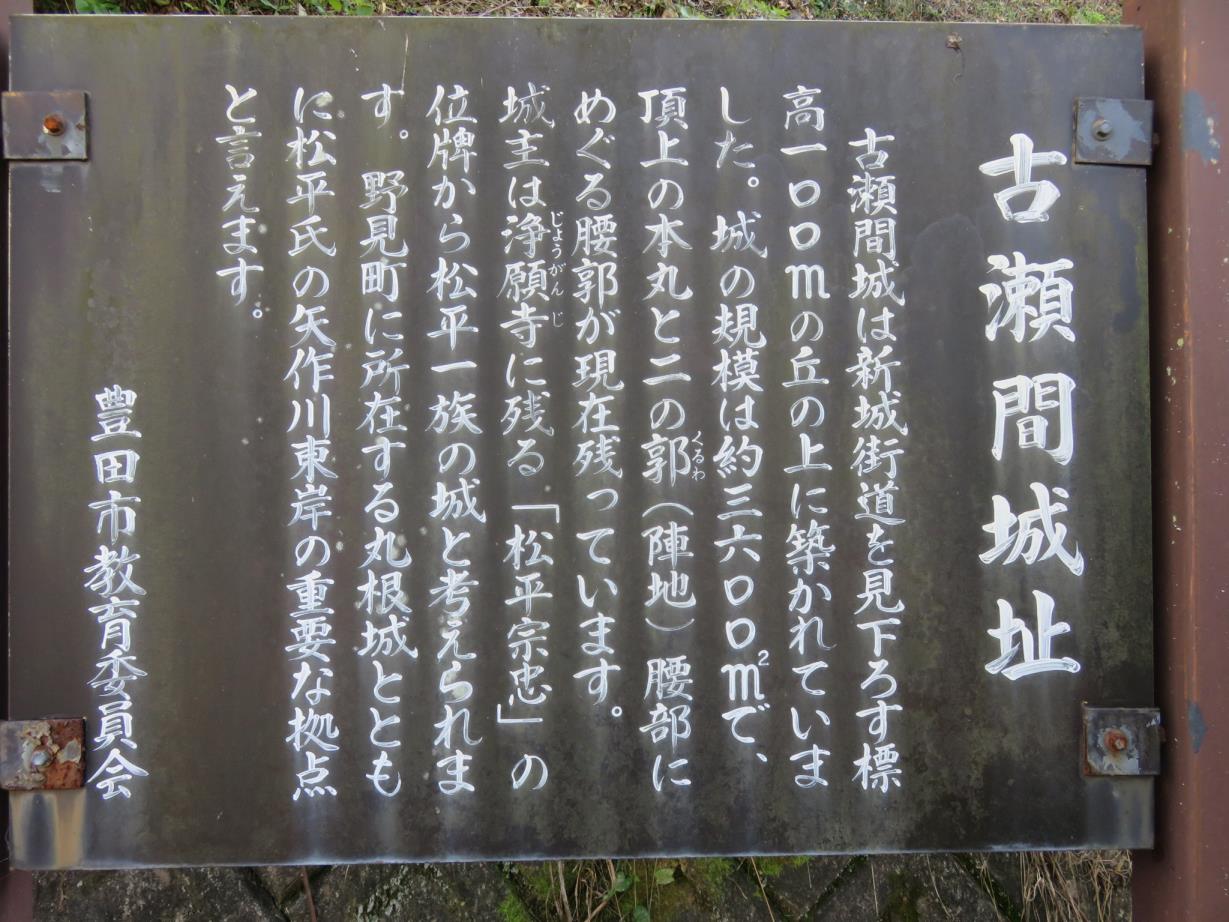 古瀬間城址
古瀬間城は新城街道を見下ろす標
高一〇〇mの丘の上に築かれていま
した。城の規模は約三六〇〇m²で、
頂上の本丸と二の郭（陣地）腰部に
くるわ
めぐる腰郭が現在残っています。
城主は浄願寺に残る「松平宗忠」の
じょうがんじ
位牌から松平一族の城と考えられま
す。野見町に所在する丸根城ととも
に松平氏の矢作川東岸の重要な拠点
と言えます。
豊田市教育委員会